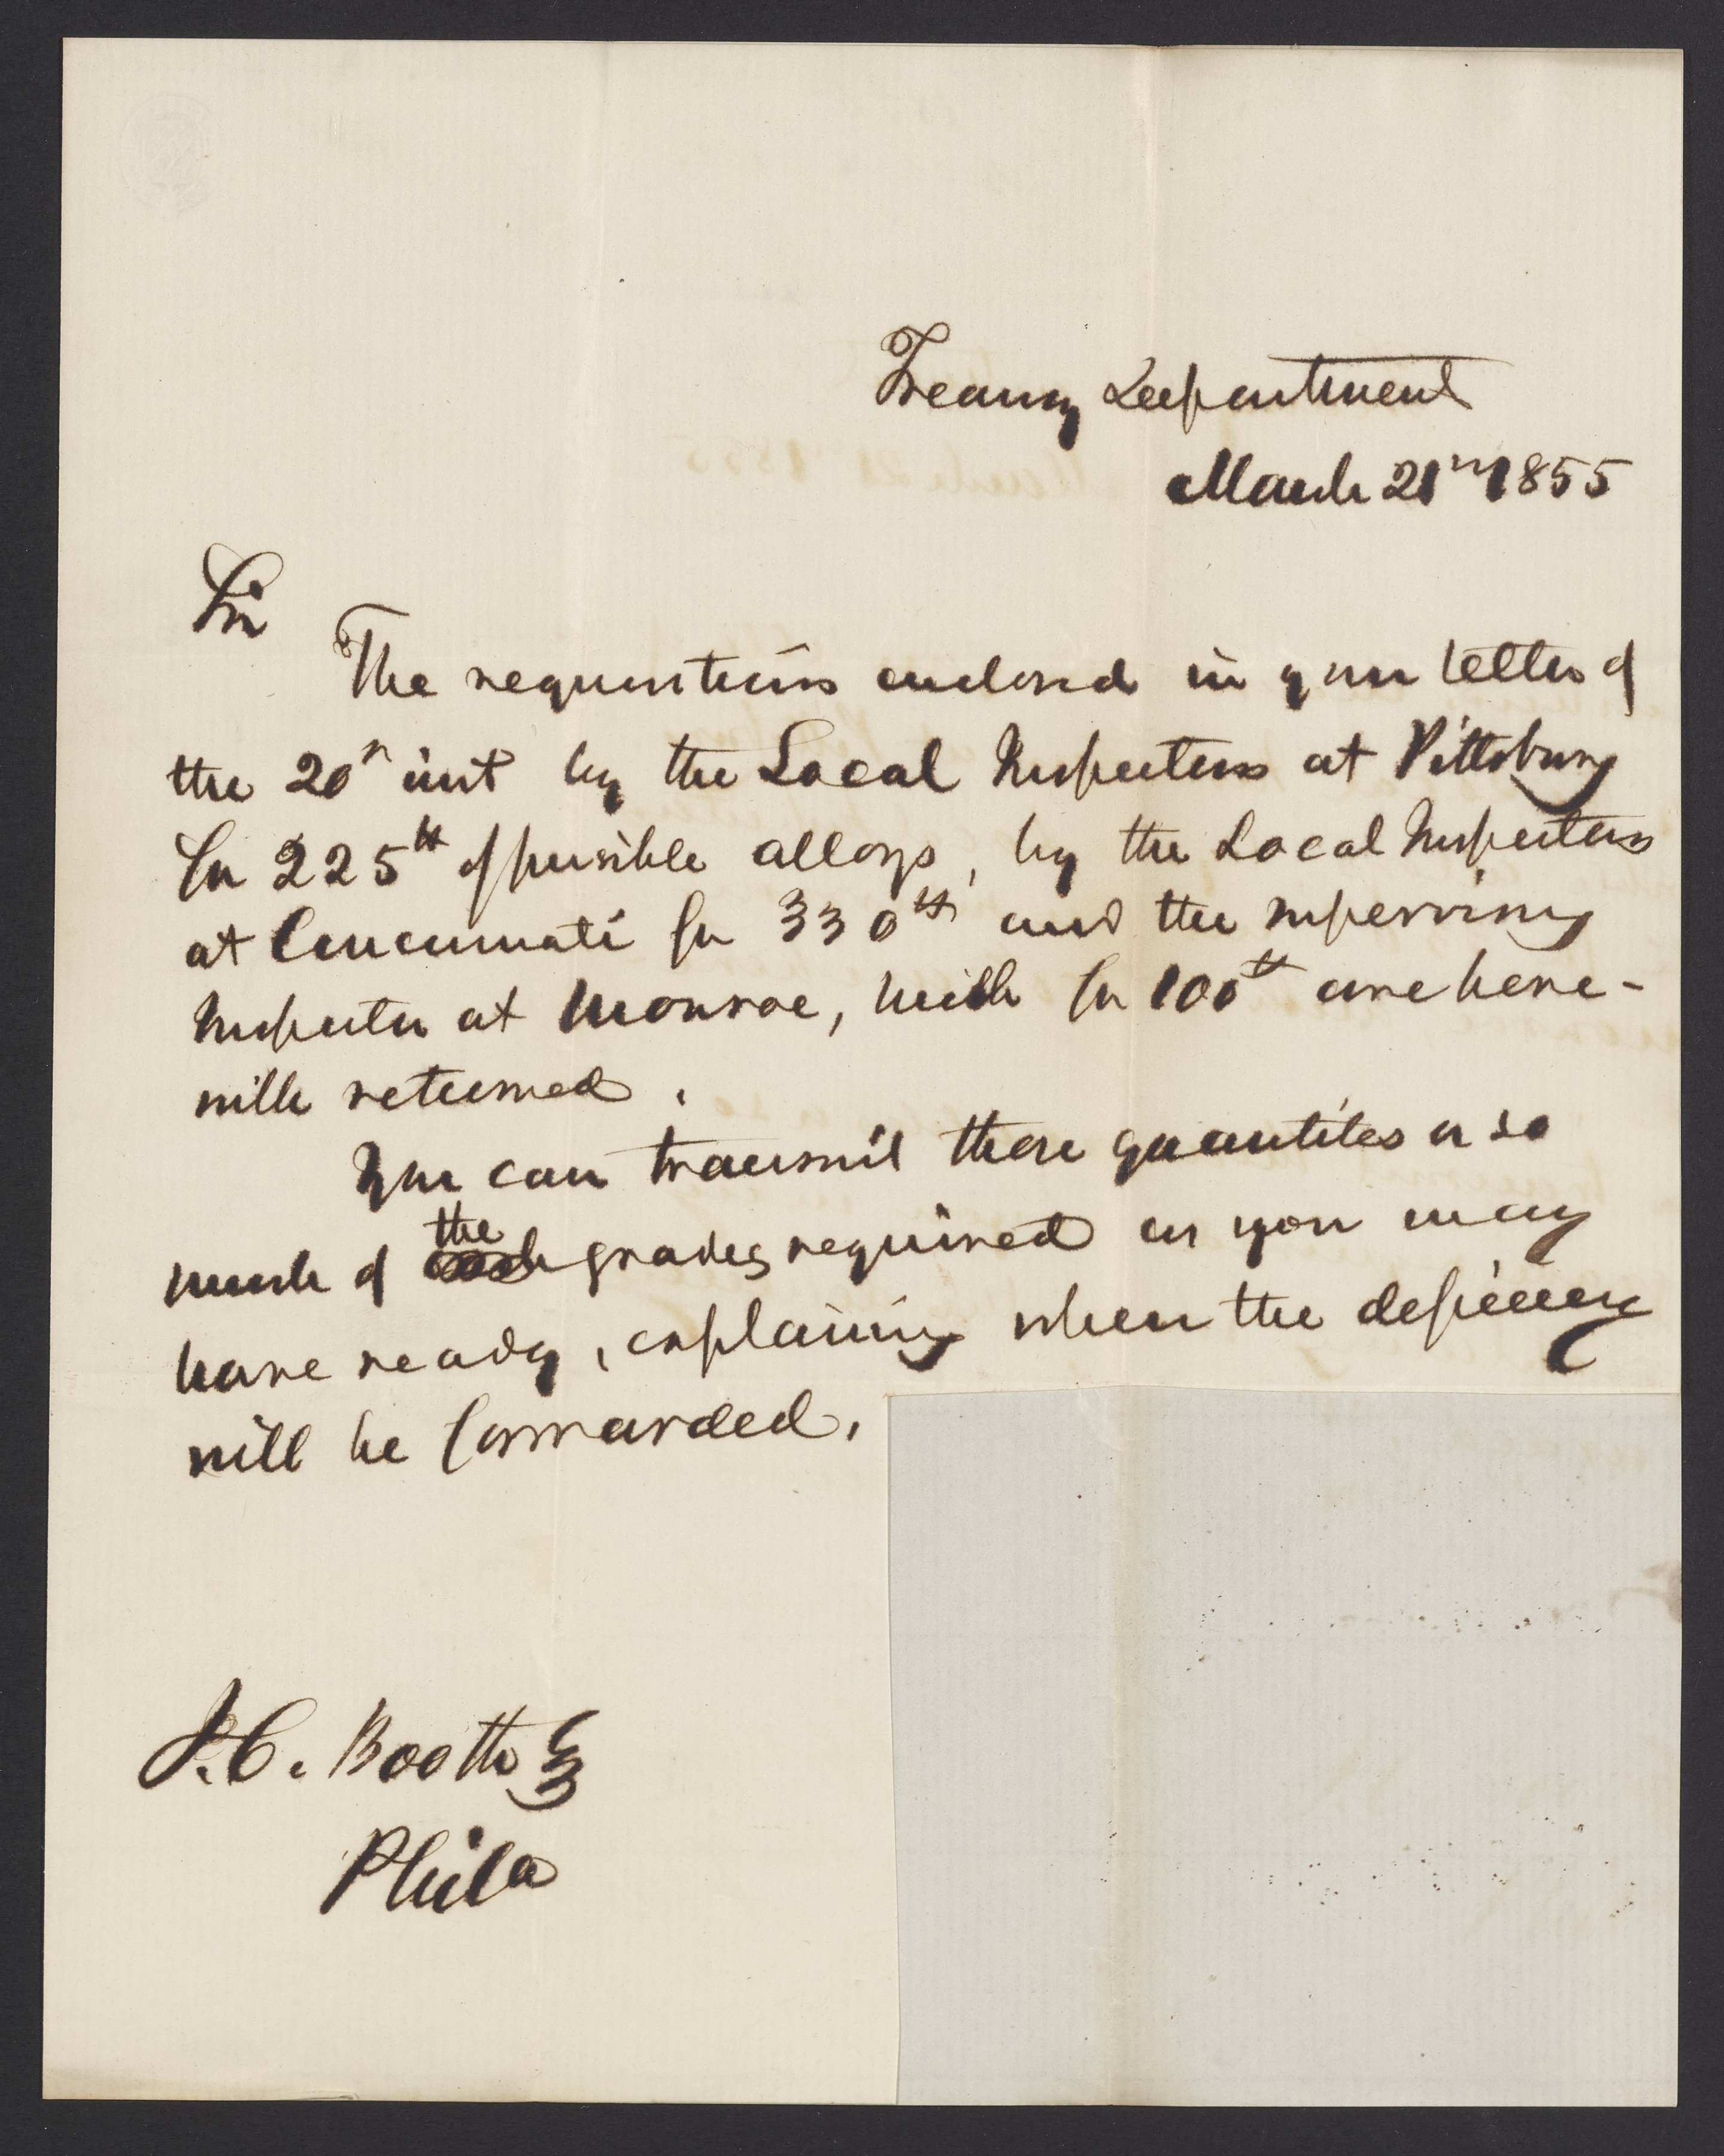 Treasury Department
March 21st 1855
Sir
The requisitions enclosed in your letter of
the 20th inst by the Local Inspectors at Pittsburg
for 225lb of fusible alloys, by the Local Inspectors
at Cincinnati for 330lbs and the supervising
Inspector at Monroe, Mich for 100lb are here-
with returned.
You can transmit these quantities or so
much of the grades required as you may
have ready, explaining when the deficiency
will be forwarded.
J.C. Booth Esq
Phila